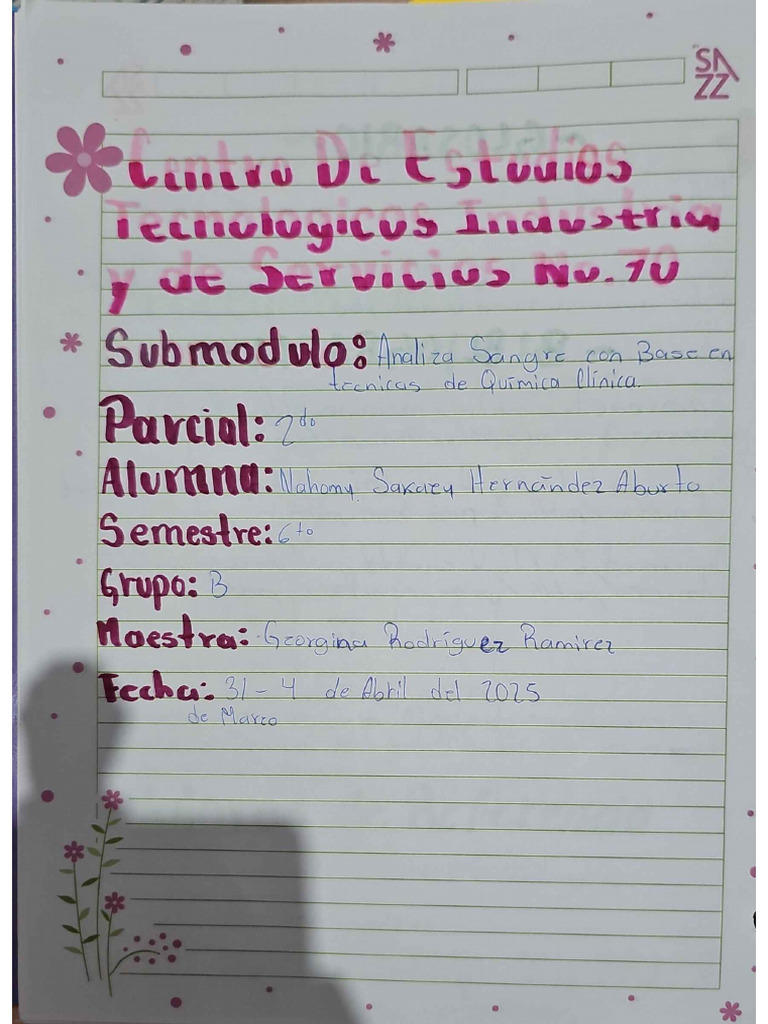 SAZZ
Centro De Estudios
Tecnologicos Industrial
y de Servicios No. 70
Submodulo: Analiza Sangre con Base en
tecnicas de Química Clínica.
Parcial: 2do
Alumna: Nahomy Sakaey Hernández Aburto
Semestre: 6to
Grupo: B
Maestra: Georgina Rodríguez Ramirez
Fecha: 31 - 4 de Abril del 2025
de Marzo